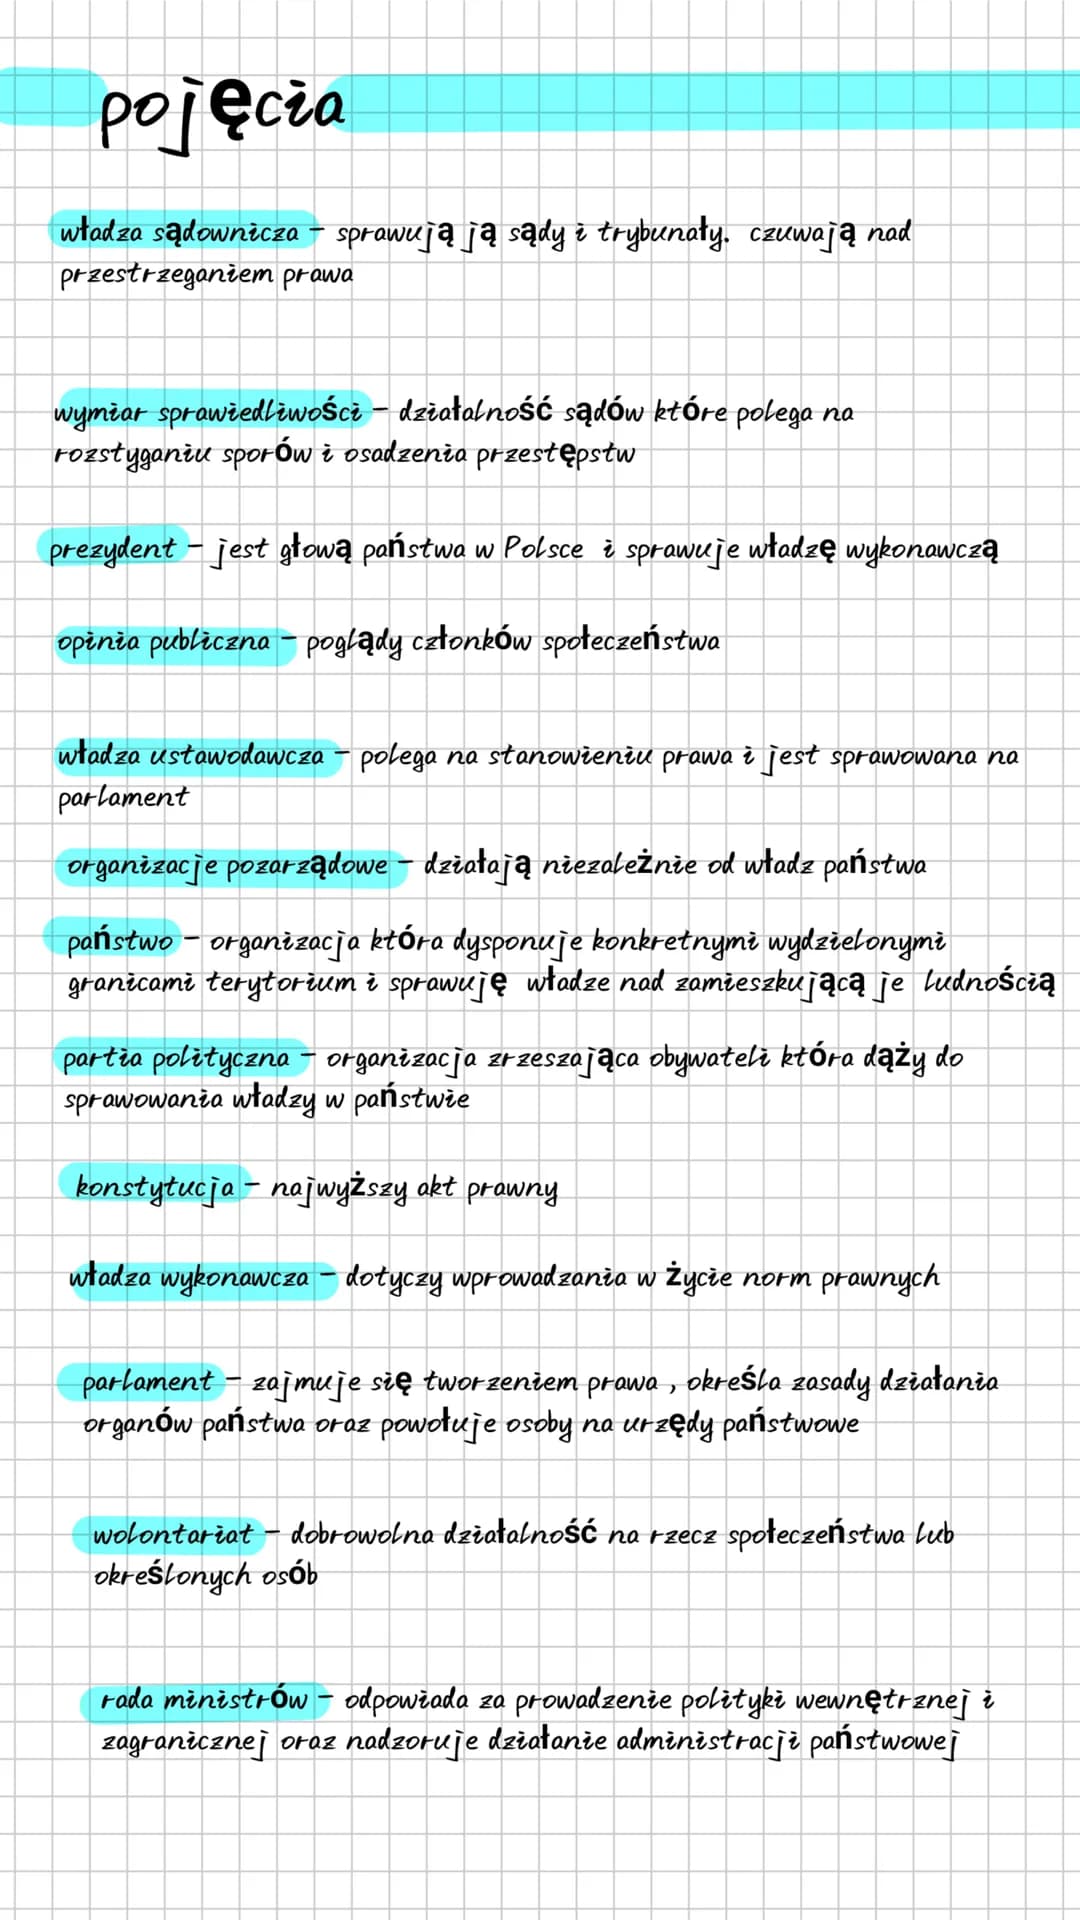 pojęcia
władza sądownicza - sprawują ją sądy i trybunały. czuwają nad
przestrzeganiem prawa
wymiar sprawiedliwości - działalność sądów które polega na
rozstyganiu sporów i osadzenia przestępstw
prezydent - jest głową państwa w Polsce i sprawuje władzę wykonawczą
opinia publiczna - poglądy członków społeczeństwa
władza ustawodawcza - polega na stanowieniu prawa i jest sprawowana na
parlament
organizacje pozarządowe - działają niezależnie od władz państwa
państwo - organizacja która dysponuje konkretnymi wydzielonymi
granicami terytorium i sprawuję władze nad zamieszkującą je ludnością
partia polityczna - organizacja zrzeszająca obywateli która dąży do
sprawowania władzy w państwie
konstytucja - najwyższy akt prawny
władza wykonawcza - dotyczy wprowadzania w życie norm prawnych
parlament - zajmuje się tworzeniem prawa , określa zasady działania
organów państwa oraz powołuje osoby na urzędy państwowe
wolontariat - dobrowolna działalność na rzecz społeczeństwa lub
określonych osób
rada ministrów - odpowiada za prowadzenie polityki wewnętrznej i
zagranicznej oraz nadzoruje działanie administracji państwowej